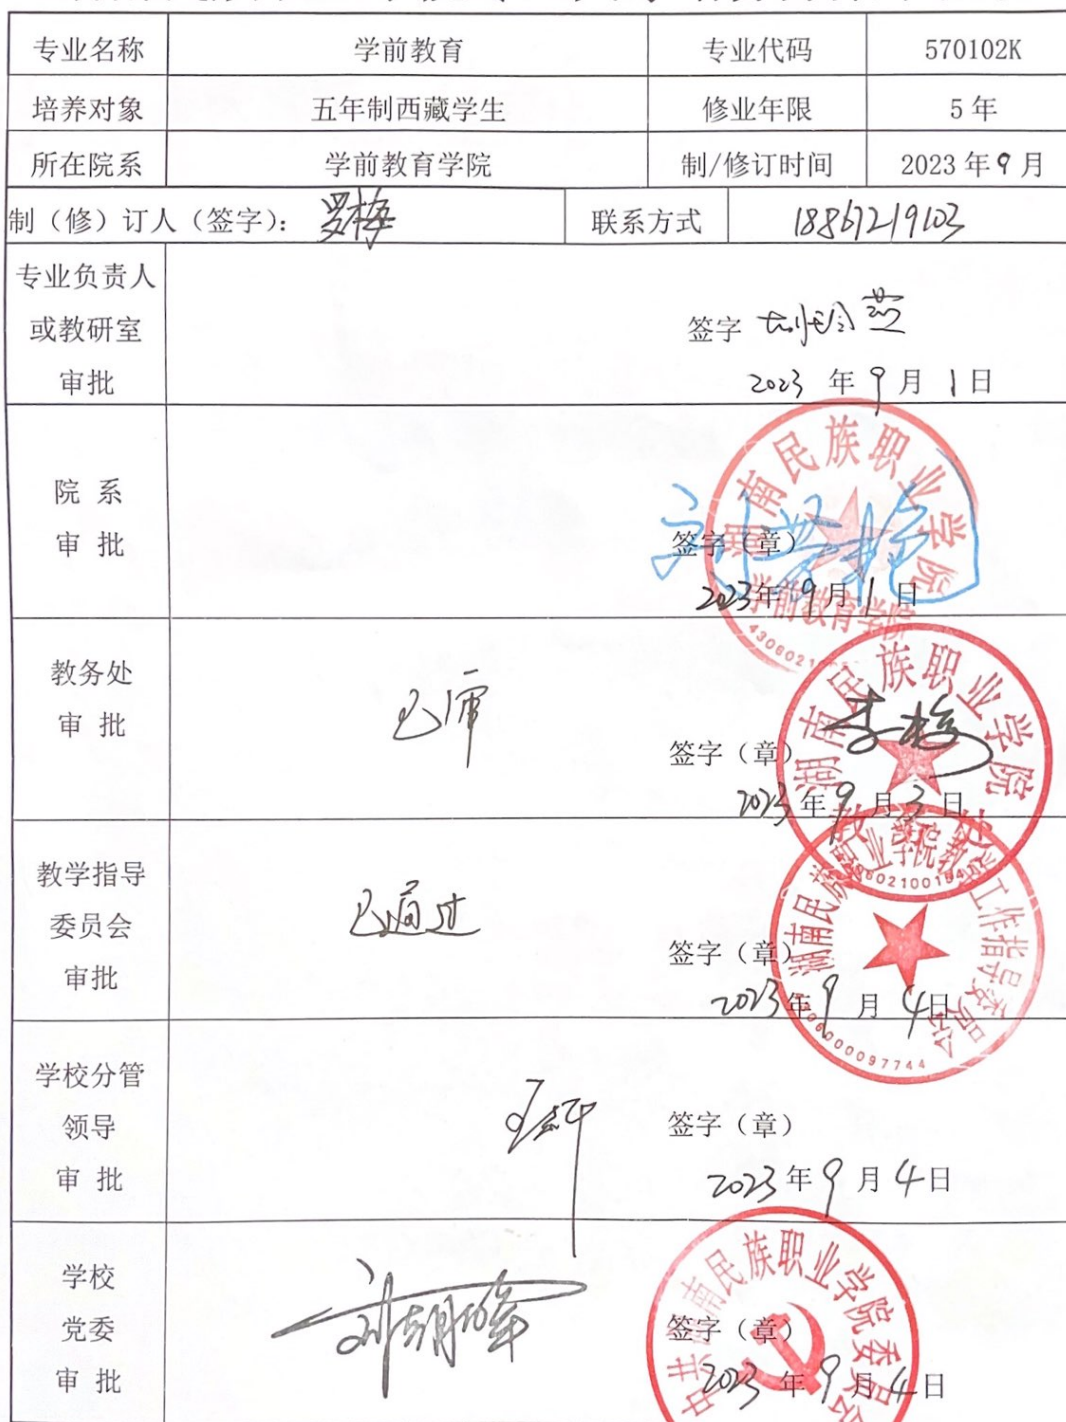 专业名称 学前教育 专业代码 570102K
培养对象 五年制西藏学生 修业年限 5年
所在院系 学前教育学院 制/修订时间 2023年9月
制（修）订人（签字）： 罗梅 联系方式 18867219103
专业负责人
或教研室
审批
签字
2023 年 9 月 1 日
院 系
审 批
签字（章）
2023年 9月 1 日
湖南民族职业学院
学前教育学院
教务处
审 批
已审
签字（章） 李梅
2023 年 9 月 3 日
湖南民族职业学院
教学指导
委员会
审批
已通过
签字（章）
2023 年 9 月 4日
湖南民族职业学院教学工作指导委员会
4306000097744
学校分管
领导
审 批
签字（章）
2023 年 9 月 4 日
学校
党委
审 批
刘朝晖
签字（章）
2023 年 9 月 4 日
中共湖南民族职业学院委员会